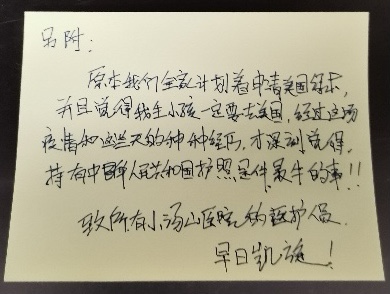 另附：
原本我们全家计划着申请美国绿卡，
并且觉得我生小孩一定要去美国，经过这场
疫情和这些天的种种经历，才深刻觉得，
持有中华人民共和国护照是件最牛的事！！
致所有小汤山医院的医护人员
早日凯旋！